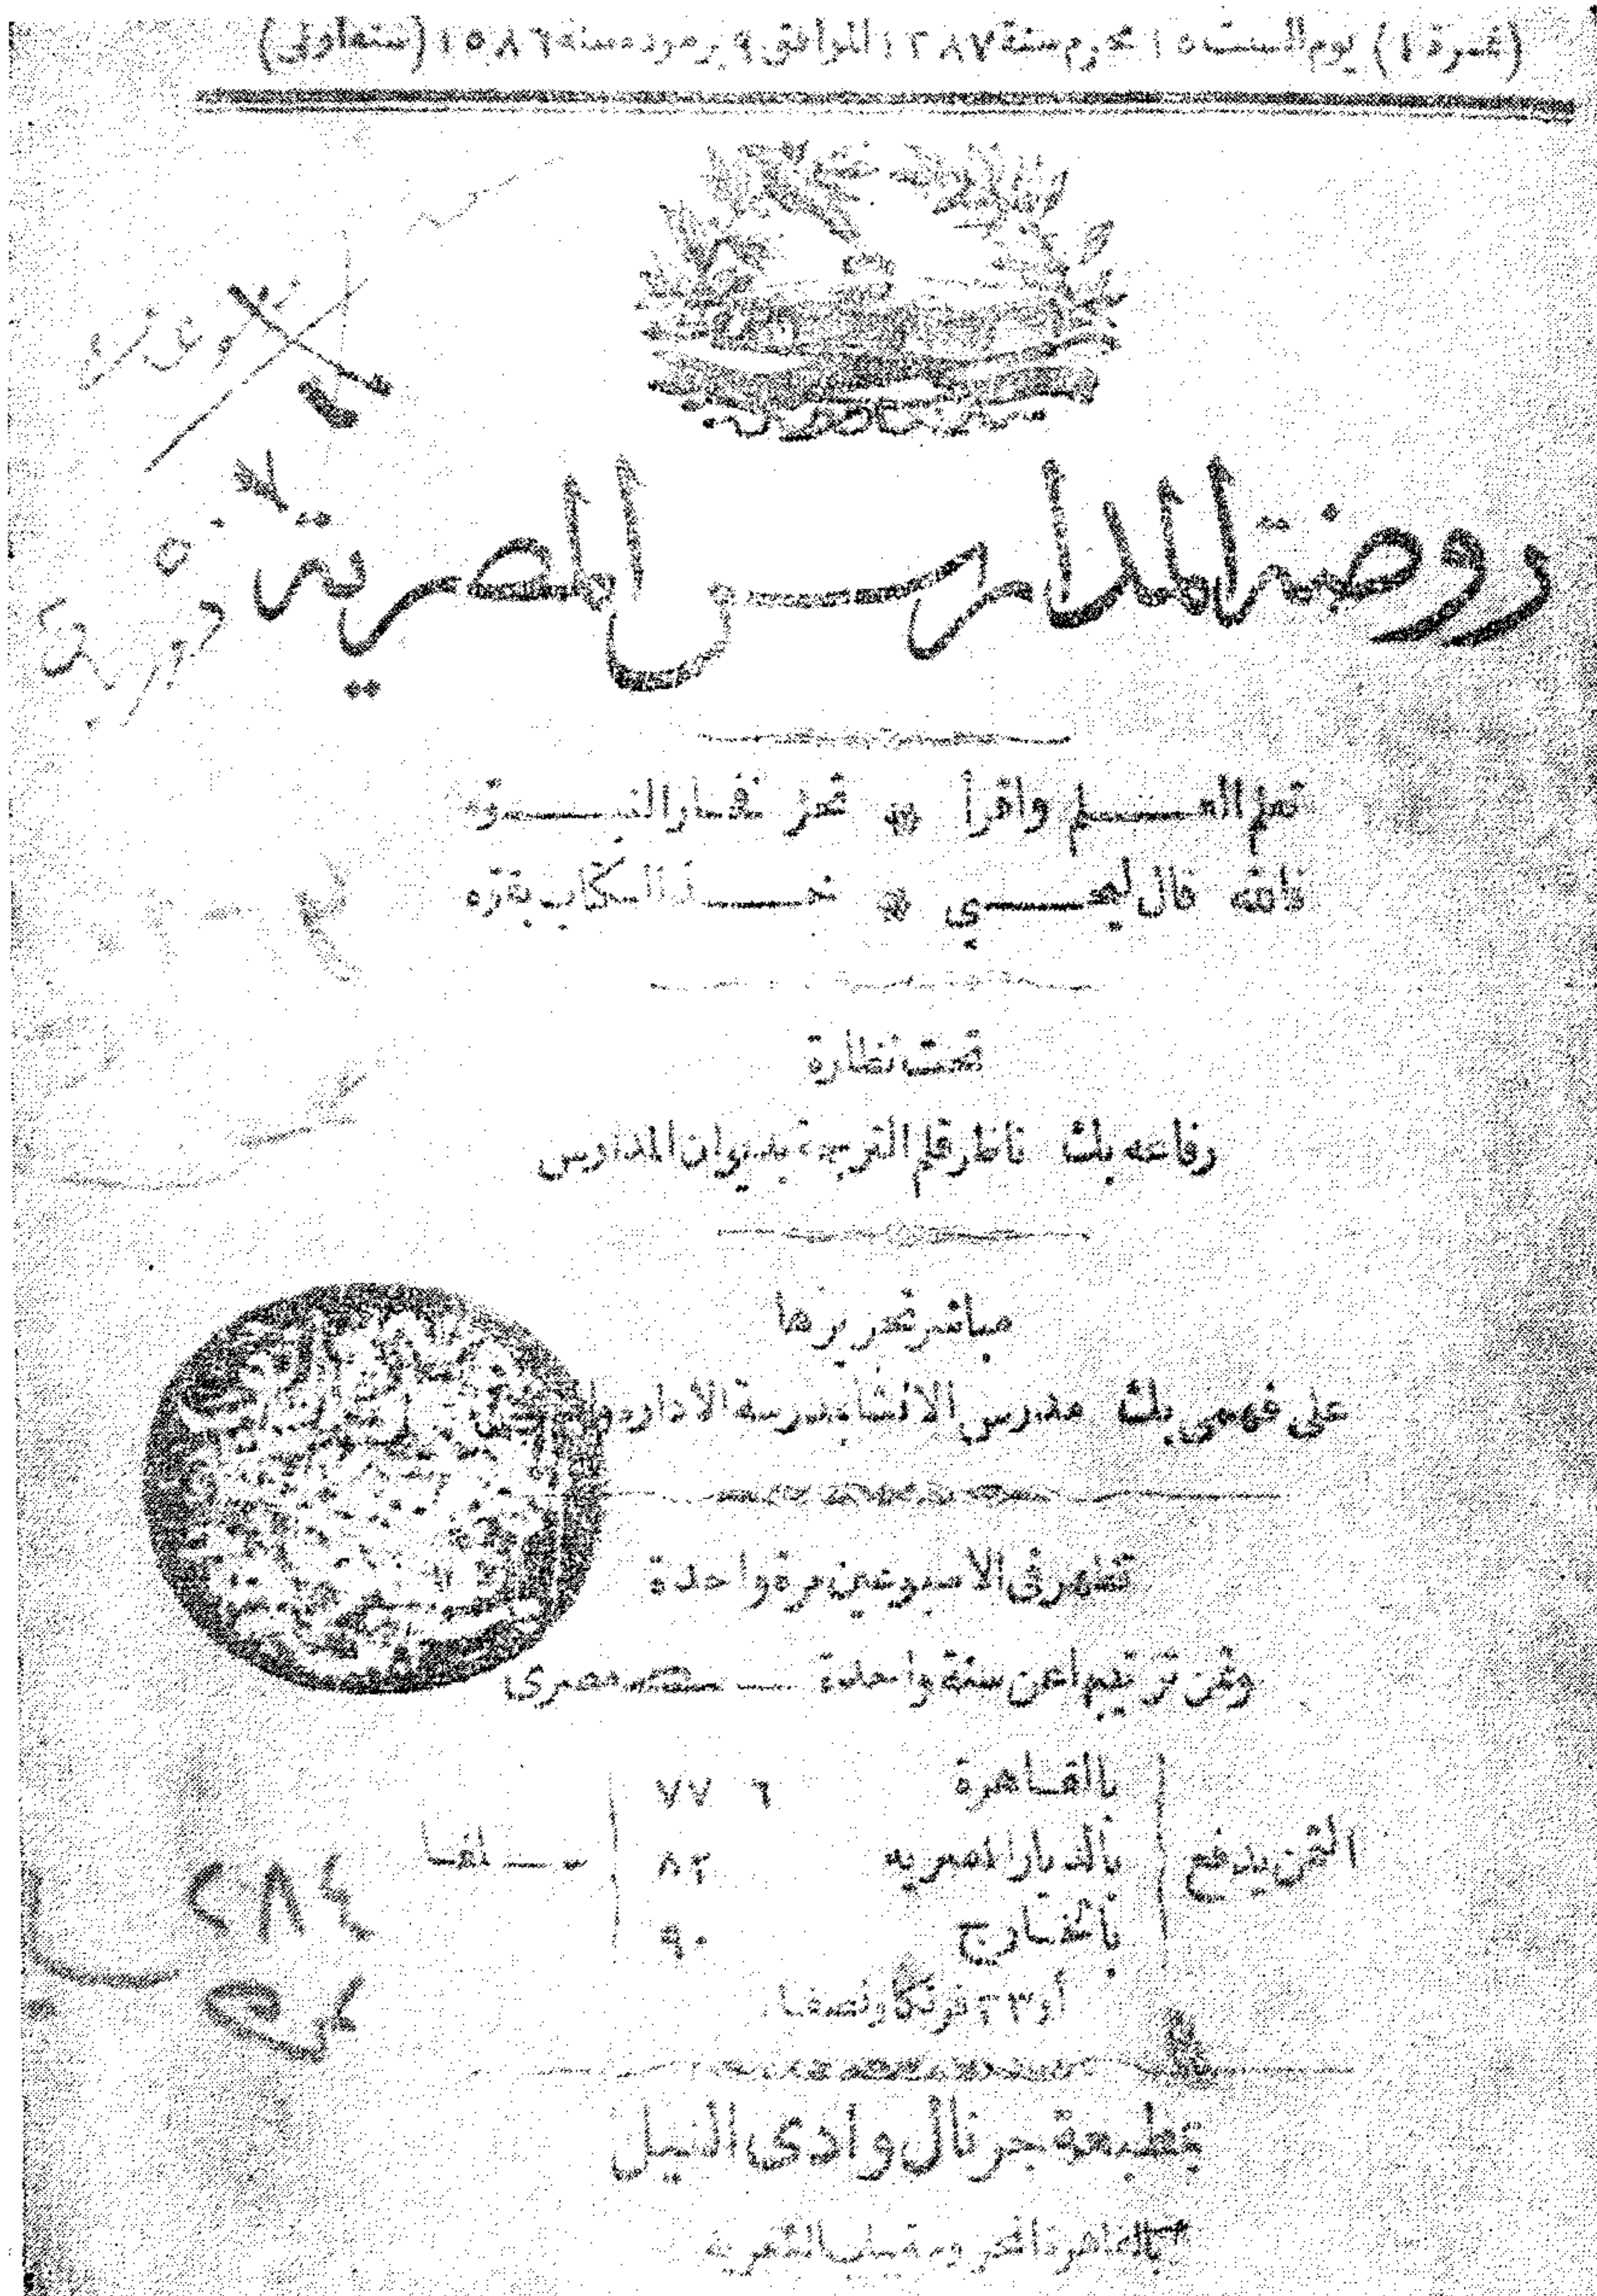 (نمرة ١) يوم السبت ١٥ محرم سنة ١٢٨٧ الموافق ٩ برموده سنه ١٥٨٦ (سنه اولى)
روضة المدارس المصرية
تعلم العلم واقرأ * تحز فخار النبوه
فالله قال ليحيي * خذ الكتاب بقوه
تحت نظارة
رفاعه بك ناظر قلم الترجمة بديوان المدارس
مباشر تحريرها
على فهمى بك مدرس الانشاء بمدرسة الادارة والالسن
تظهر فى الاسبوعين مرة واحدة
وثمن ترتيبها عن سنة واحدة مصرى
الثمن يدفع سلفا
بالقاهرة ٧٧ ٦
بالديار المصريه ٨٣
بالخارج ٩٠
أو ٢٣ فرنكا ونصفا
بمطبعة جرنال وادى النيل
بالقاهرة
٢٨٤